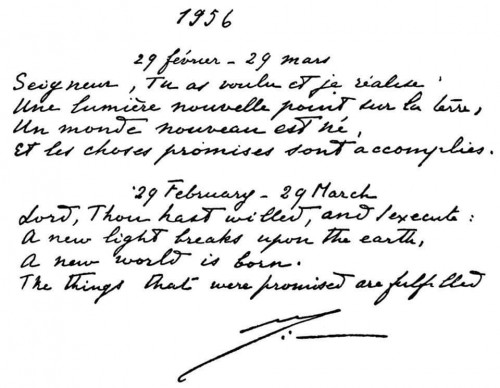 1956
29 février – 29 mars
Seigneur, Tu as voulu et je réalise :
Une lumière nouvelle point sur la terre,
Un monde nouveau est né,
Et les choses promises sont accomplies.
29 February – 29 March
Lord, Thou hast willed, and I execute :
A new light breaks upon the earth,
A new world is born.
The things that were promised are fulfilled